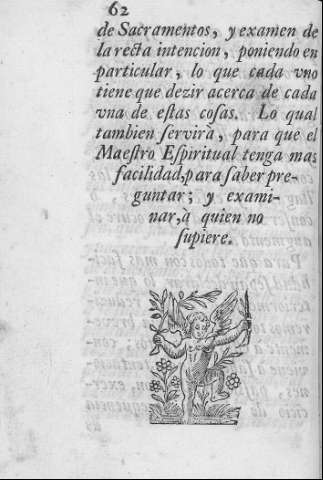 62
de Sacramentos, y examen de
la recta intencion, poniendo en
particular, lo que cada vno
tiene que dezir acerca de cada
vna de estas cosas. Lo qual
tambien servirà, para que el
Maestro Espiritual tenga mas
facilidad, para saber pre-
guntar; y exami-
nar, à quien no
supiere.